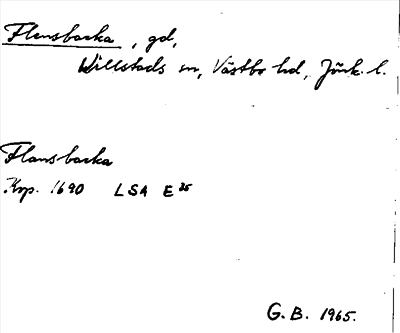 Flensbacka, gd,
Willstads sn, Västbo hd, Jönk. l.
Flansbacka
Krp. 1690 LSA E 35
G.B. 1965.